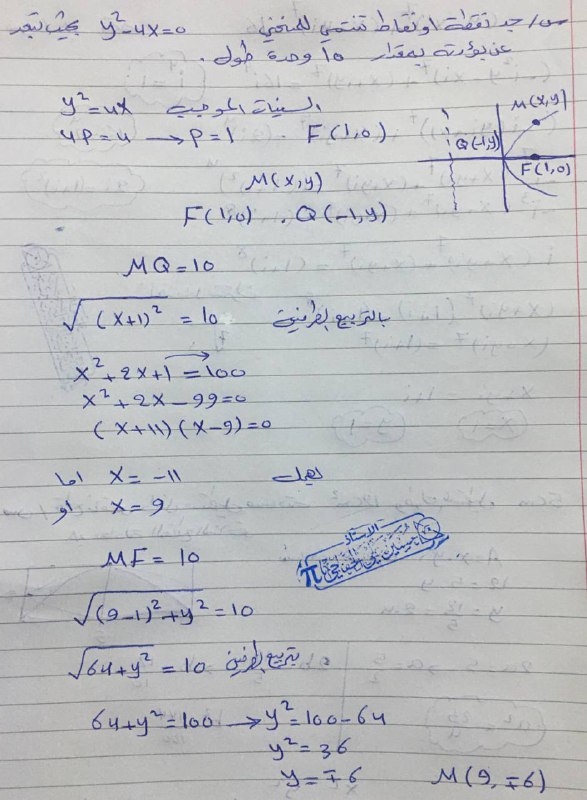 س/ جد نقطة او نقاط تنتمي للمنحني y²-4x=0 بحيث تبعد
عن بؤرته بمقدار 10 وحدة طول .
y²=4x السينات الموجب
4P=4 → P=1 . F(1,0)
M(x,y)
Q(-1,y)
F(1,0)
M(x,y)
F(1,0) . Q(-1,y)
MQ=10
√(x+1)² = 10 بالتربيع الطرفين
x²+2x+1=100
x²+2x-99=0
(x+11)(x-9)=0
اما x=-11 يهمل
او x=9
MF=10
الاستاذ
π
√(9-1)²+y² =10
√64+y² =10 بتربيع الطرفين
64+y²=100 → y²=100-64
y²=36
y=∓6 M(9,∓6)